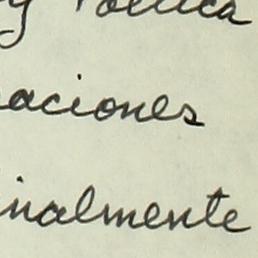 y Política
aciones
inalmente